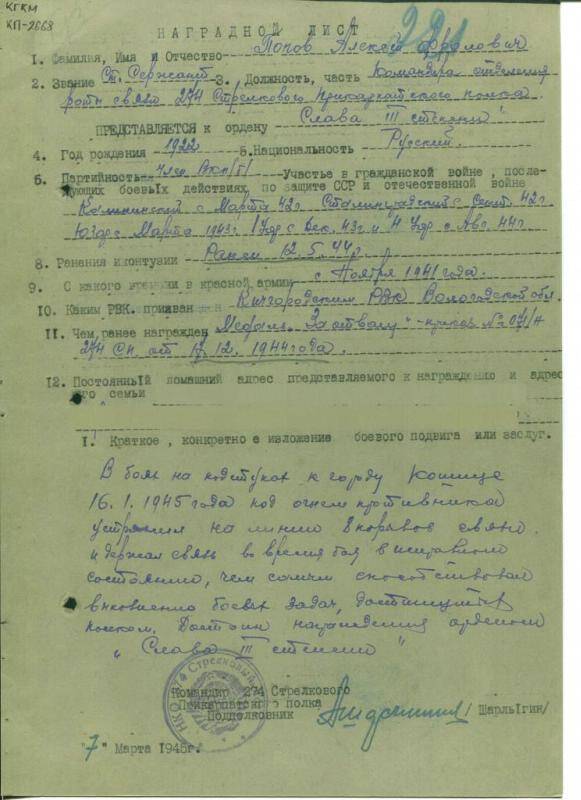 КГКМ
КП-2668
221
НАГРАДНОЙ ЛИСТ
1. Фамилия, Имя и Отчество Попов Алексей Фролович
2. Звание Ст. Сержант 3. Должность, часть Командира отделения
роты связи 274 Стрелкового Прикарпатского полка
ПРЕДСТАВЛЯЕТСЯ к ордену Слава III степени"
4. Год рождения 1922 5. Национальность Русский.
6. Партийность член ВКП/б/ Участье в гражданской войне, после-
дующих боевых действиях по защите ССР и отечественной войне
Калининский с Марта 42г. Сталинградский с Сент. 42г.
Юго с Марта 1943г. 1 Укр с Дек. 43г и 4 Укр с Авг. 44г
8. Ранения и контузии Ранен 12.5.44г.
9. С какого времени в красной армии с Ноября 1941 года.
10. Каким РВК. призван Кичгородским РВК Вологодской обл.
11. Чем ранее награжден Медаль "За отвагу" - приказ № 071/н
274 СП от 12.1944 года.
12. Постоянный домашний адрес представляемого к награждению и адрес
его семьи
1. Краткое, конкретно е изложение боевого подвига или заслуг.
В боях на подступах к городу Кошице
16.1.1945 года под огнем противника
устранил на линии порывов связи
и держал связь во время боя в исправном
состоянии, чем самым способствовал
боевых задач,
полком. Достоин награждения орденом
"Слава III степени"
НКО 274 Стрелковый
Командир 274 Стрелкового
Прикарпатског о полка
Подполковник /Шарлыгин/
"7" Марта 1945г.